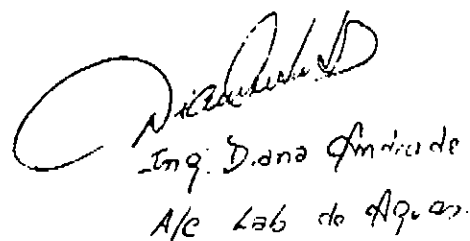 Ing. Diana Andrade
A/C Lab de Aguas.